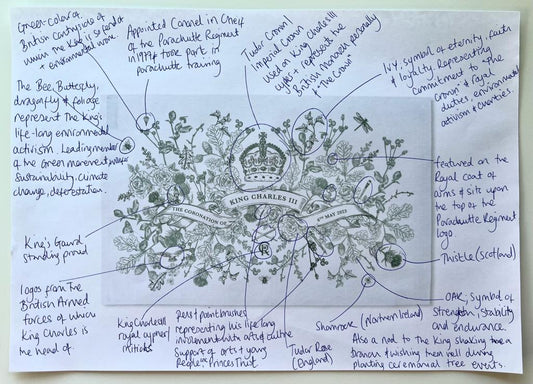 Green colour of
British countryside of
which the King is so fond of
+ environmental work.
Appointed Colonel in Chief
of the Parachute Regiment
in 1977 + took part in
parachute training
Tudor Crown/
Imperial Crown
used on King Charles III
cypher + represent the
British Monarch personally
+ "The Crown"
Ivy, symbol of eternity, faith
& loyalty. Representing
commitment to "the
crown" & royal
duties, environmental
activism & charities.
The Bee, Butterfly,
dragonfly & foliage
represent the King's
life-long environmental
activism. Leading member
of the Green movement
Sustainability, climate
change, deforestation.
featured on the
Royal coat of
arms & sits upon
the top of the
Parachute Regiment
logo.
KING CHARLES III
THE CORONATION OF
6TH MAY 2023
King's Guard
standing proud
Thistle (Scotland)
logos from the
British Armed
forces of which
King Charles is
the head of.
King Charles III
royal cypher/
initials
Pens & paint brushes
representing his life long
involvement with arts & culture
Support of arts & young
people Princes Trust
Tudor Rose
(England)
Shamrock (Northern Ireland)
OAK, symbol of
strength, stability
and endurance.
Also a nod to the King shaking
branch & wishing them well during
planting ceremonial tree events.